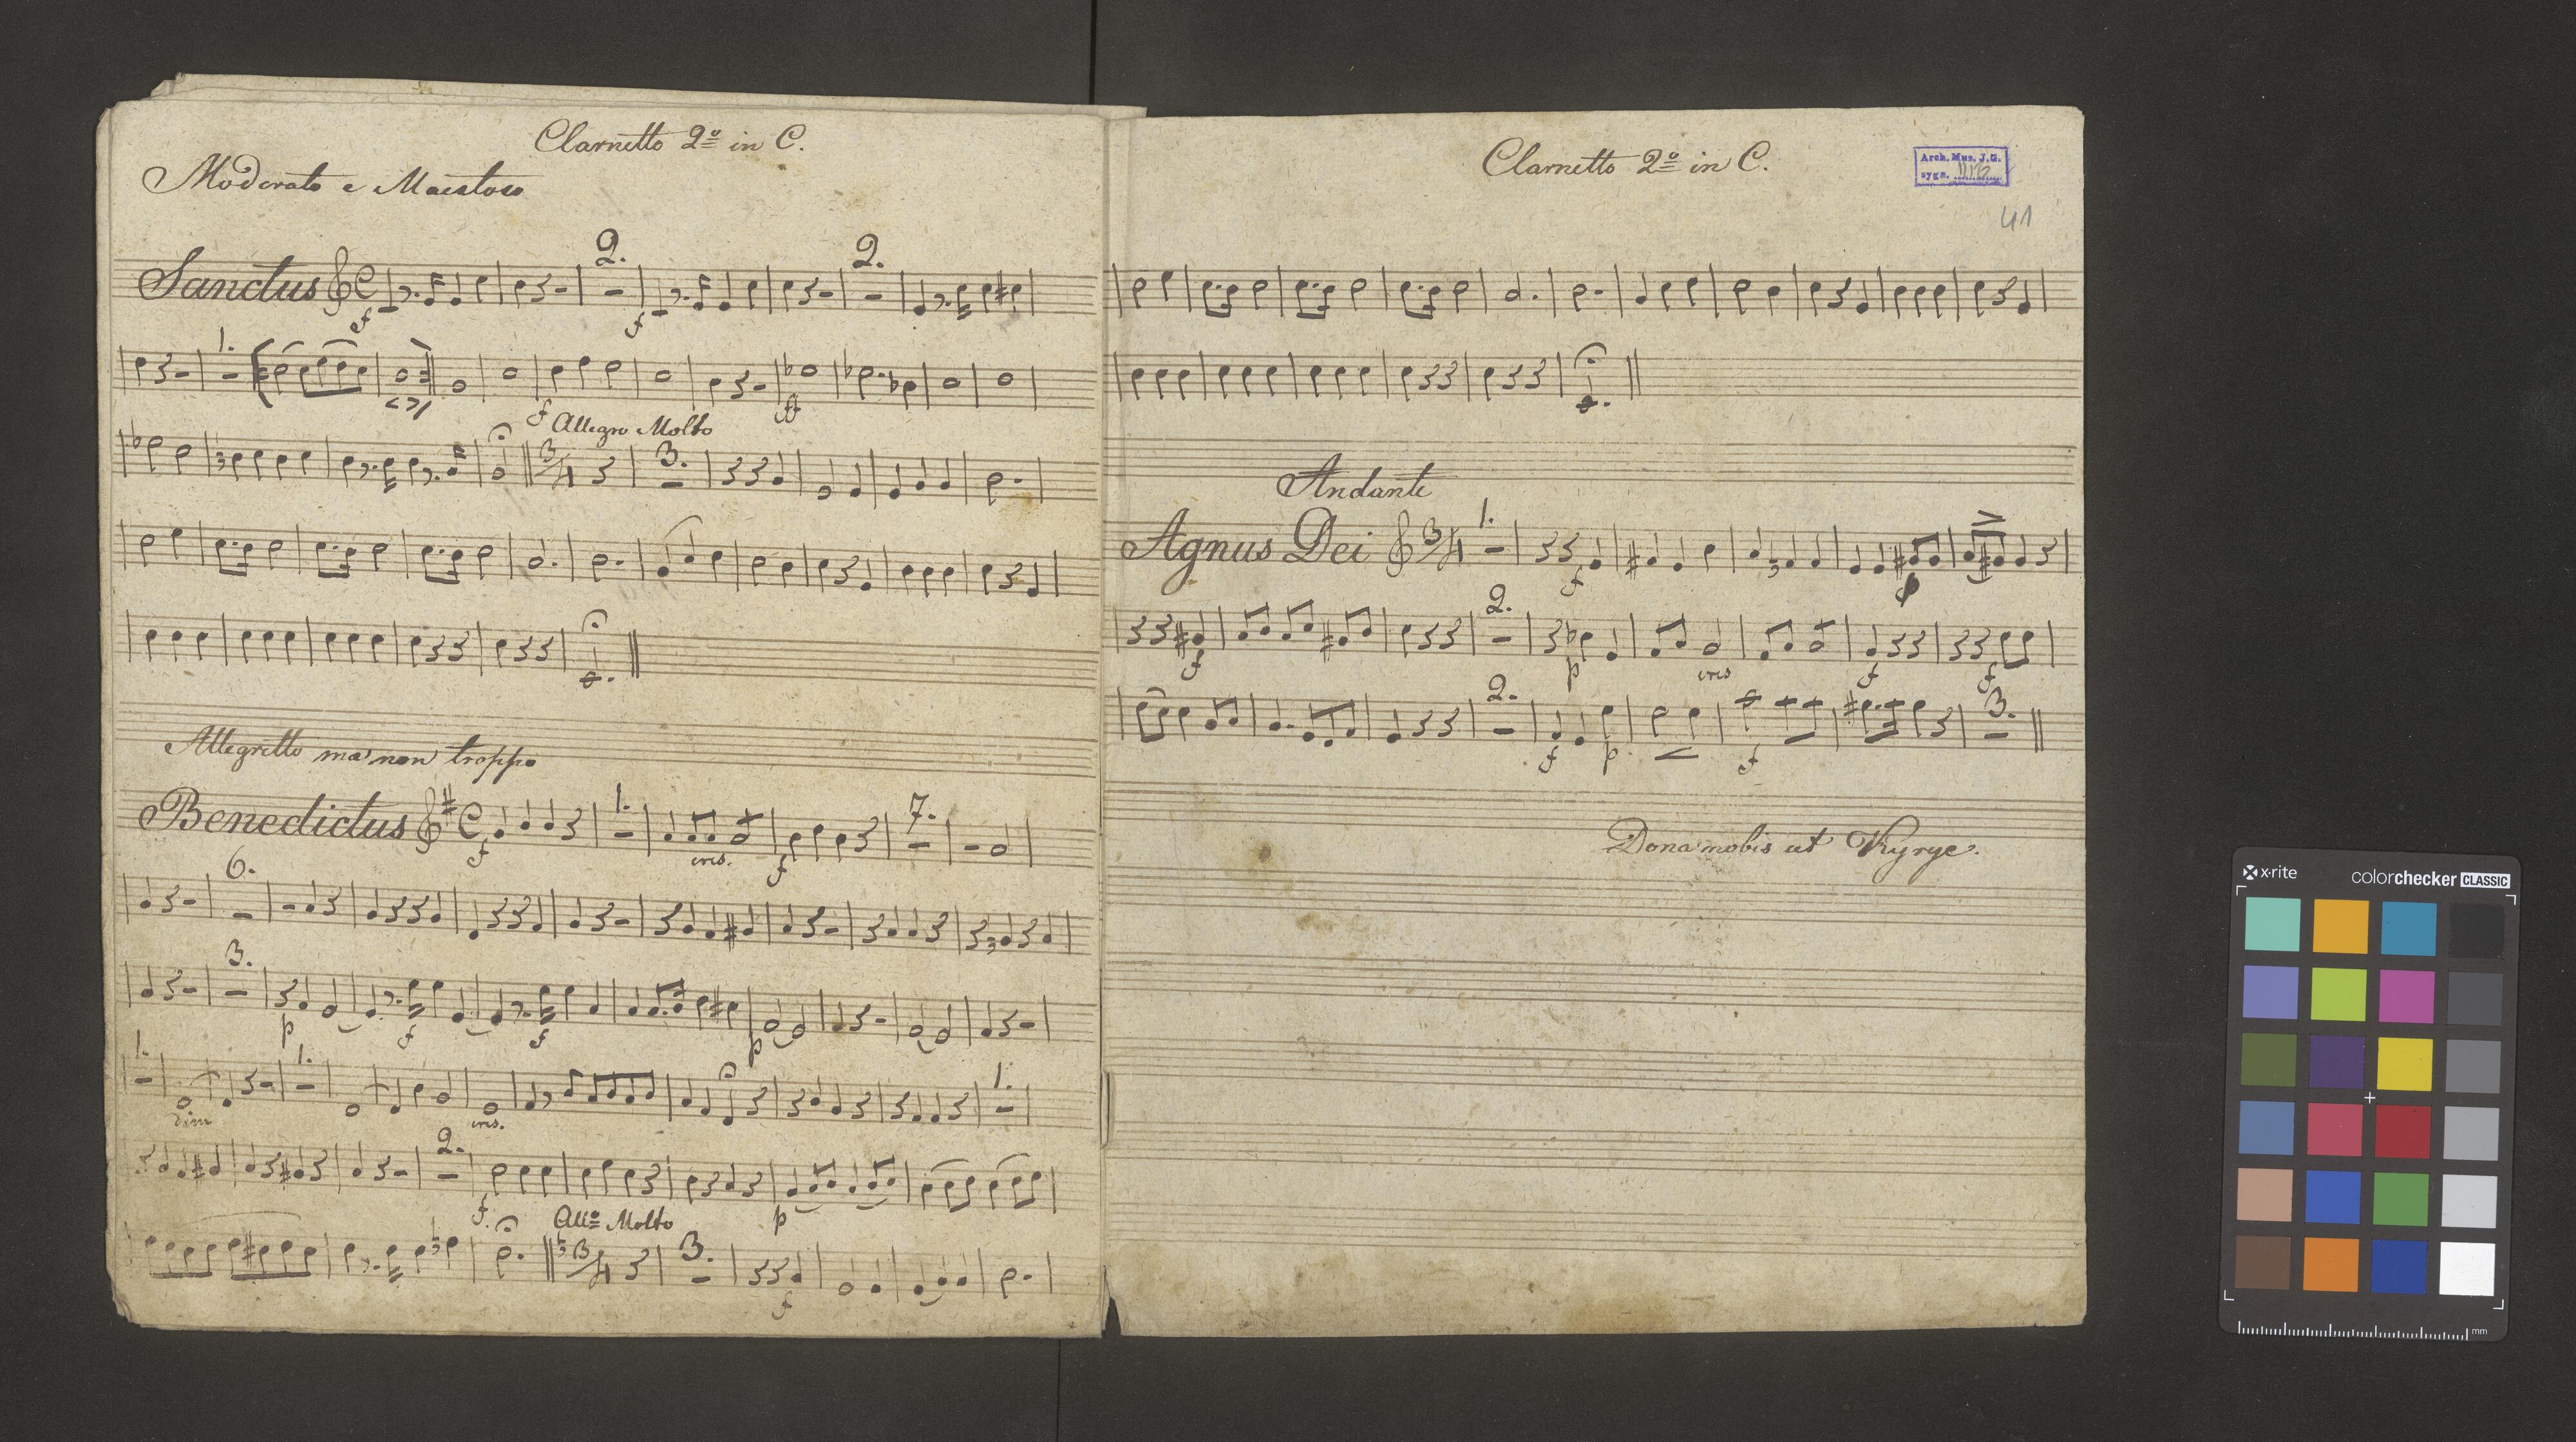 Clarnetto 2º in C.
Moderato e Maestoso
2.
2.
Sanctus
f
f
1.
f
ff
Allegro Molto
3/4
3.
Allegretto ma non troppo
Benedictus
1.
7.
f
cres.
f
6.
3.
p
f
f
p
1.
1.
1.
dim
cres.
2.
f.
p
Allº Molto
3/4
3.
f
Clarnetto 2º in C.
Arch. Mus. J.G.
sygn.
41
Andante
Agnus Dei
3/4
1.
f
p
2.
f
p
cres
f
f
2.
3.
f
p.
f
Dona nobis ut Kyrye.
x·rite
colorchecker CLASSIC
mm